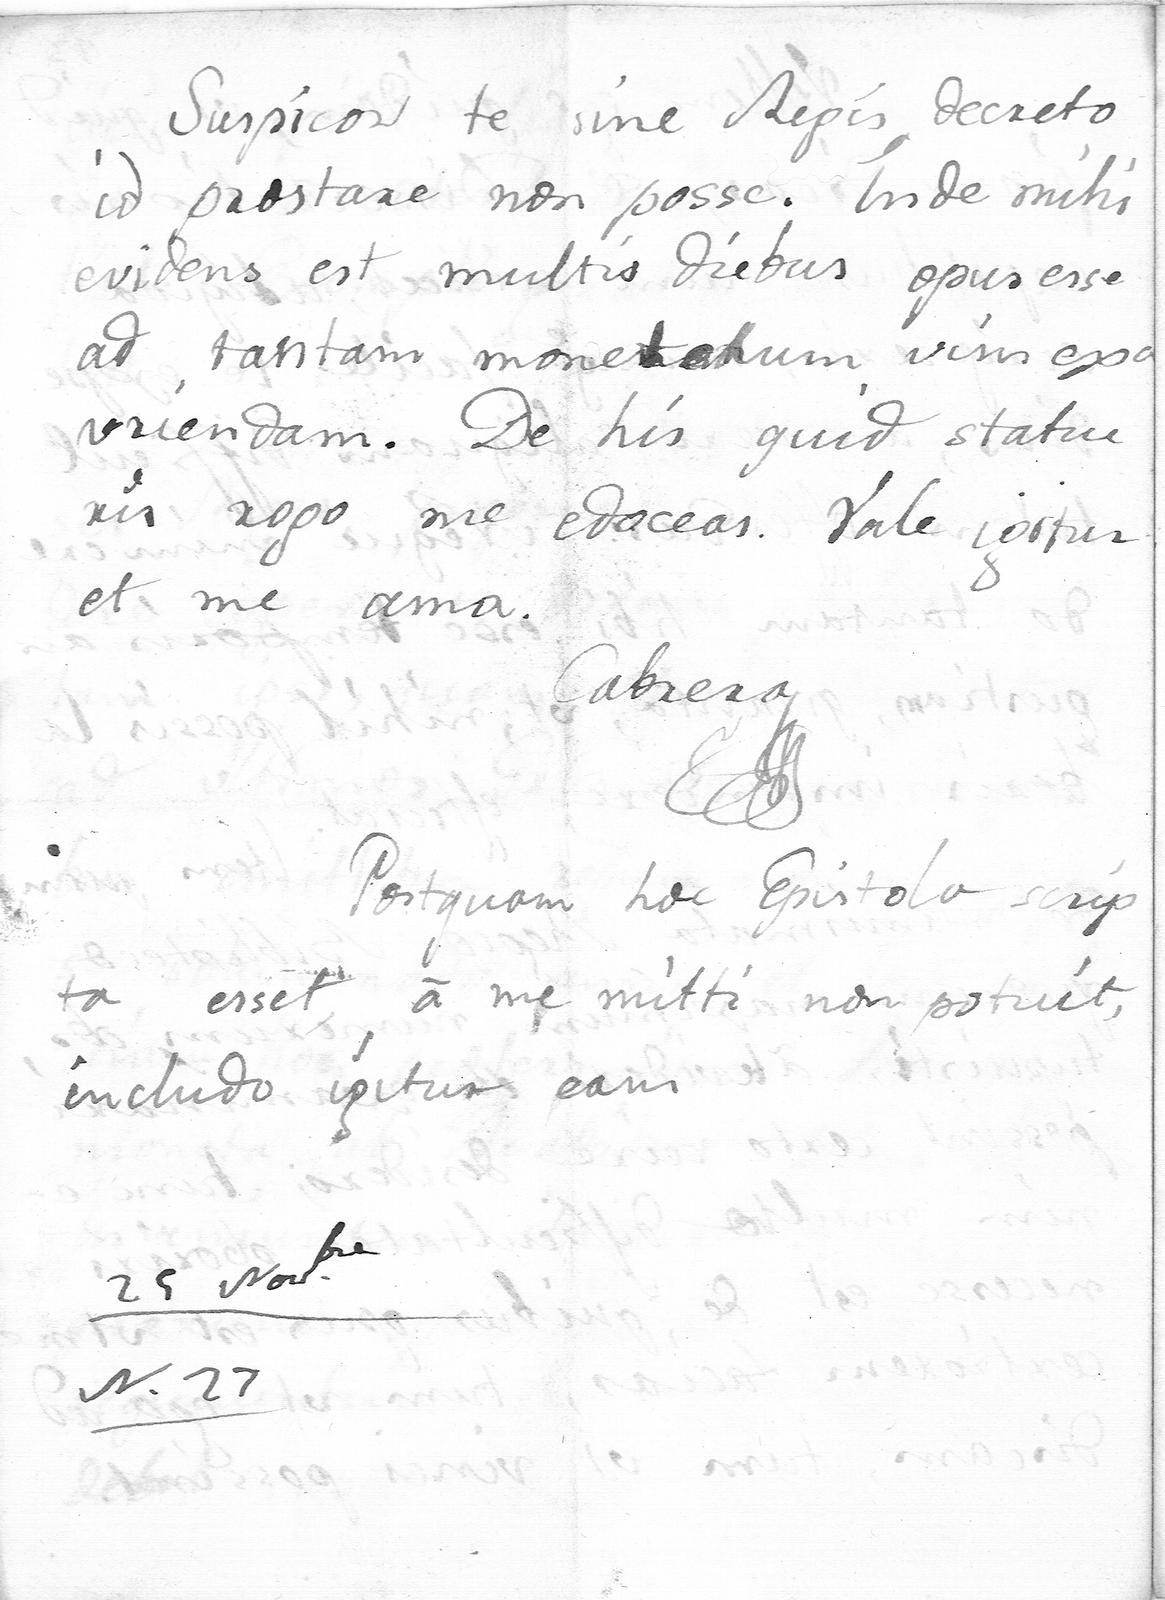 Suspicor te sine Regis decreto
id præstare non posse. Inde mihi
evidens est multis diebus opus esse
ad tantam monetalium vim expo
vriendam. De his quid statue
ris rogo me edoceas. Vale igitur
et me ama.
Cabrera
Postquam hæc Epistola scrip
ta esset, ā me mitti non potuit,
includo igitur eam
25 Nov.bre
N. 27